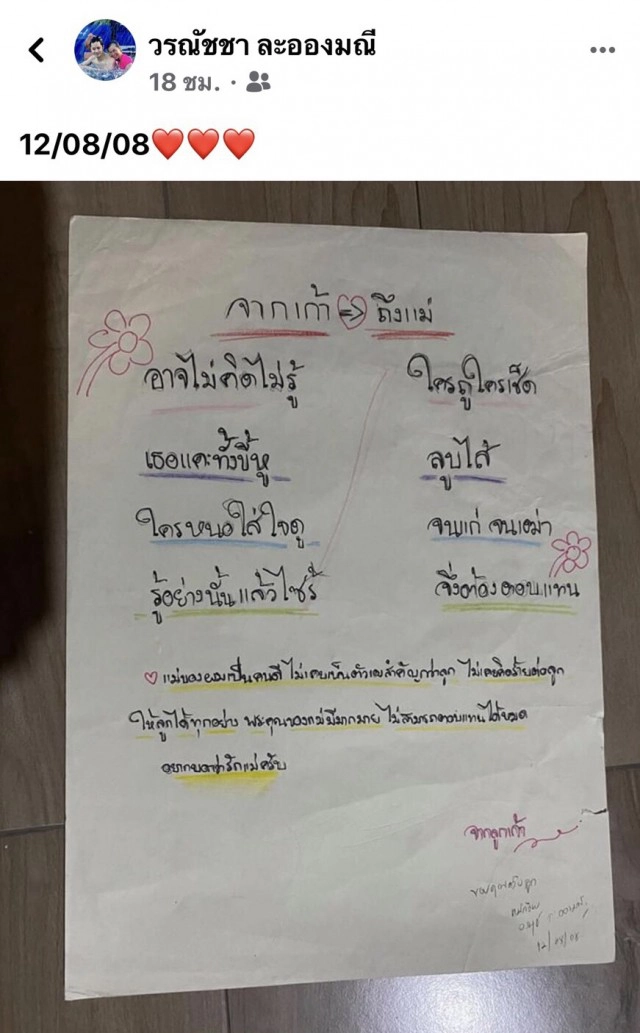 วรณัชชา ละอองมณี
18 ชม. ·
12/08/08❤️❤️❤️
จากเก้า => ถึงแม่
อาจไม่คิดไม่รู้ ใครถูใครเช็ด
เธอแคะทั้งขี้หู ลูบไส้
ใครหนอใส่ใจดู จนแก่ จนเฒ่า
รู้อย่างนั้นแล้วไซร้ จึ่งต้องตอบแทน
♡ แม่ของผมเป็นคนดี ไม่เคยเห็นตัวเองสำคัญกว่าลูก ไม่เคยคิดร้ายต่อลูก
ให้ลูกได้ทุกอย่าง พระคุณของแม่มีมากมาย ไม่สามารถตอบแทนได้หมด
อยากบอกว่ารักแม่ครับ
จากลูกเก้า
ขอบคุณครับลูก
12/08/08